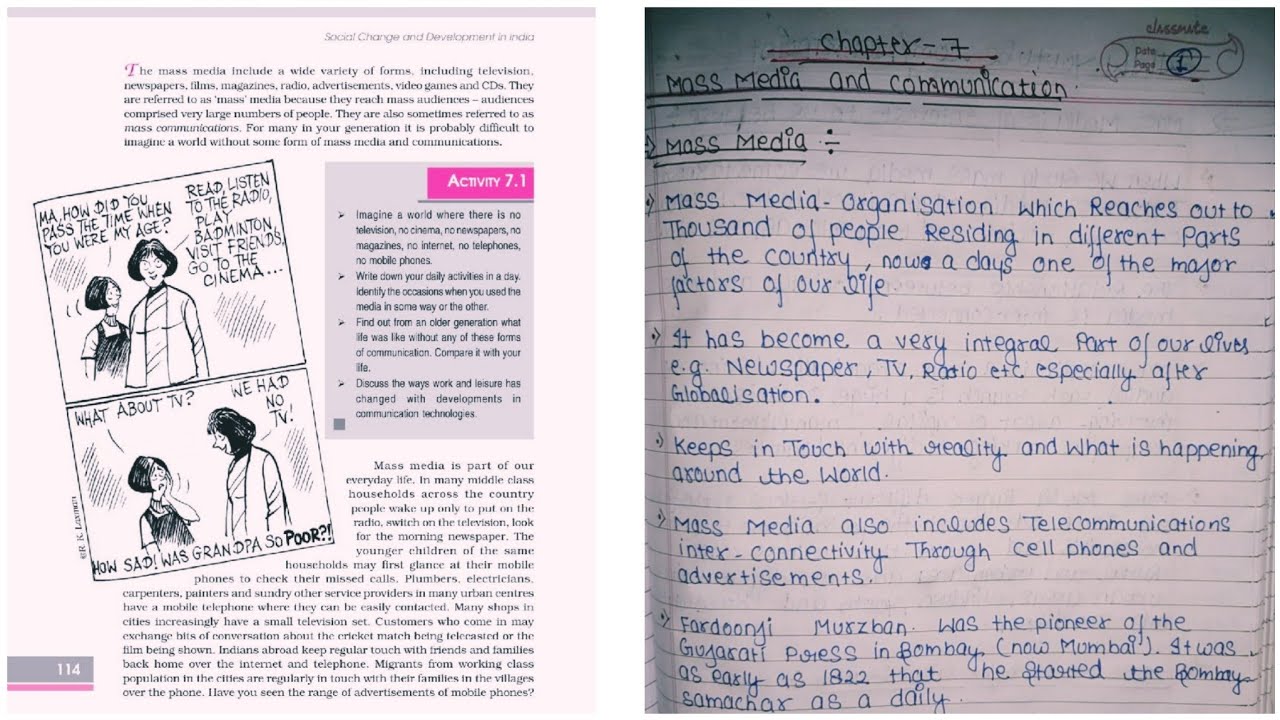 Social Change and Development in India
The mass media include a wide variety of forms, including television,
newspapers, films, magazines, radio, advertisements, video games and CDs. They
are referred to as ‘mass’ media because they reach mass audiences – audiences
comprised very large numbers of people. They are also sometimes referred to as
mass communications. For many in your generation it is probably difficult to
imagine a world without some form of mass media and communications.
MA, HOW DID YOU
PASS THE TIME WHEN
YOU WERE MY AGE?
READ, LISTEN
TO THE RADIO,
PLAY
BADMINTON,
VISIT FRIENDS,
GO TO THE
CINEMA...
WHAT ABOUT TV?
WE HAD
NO
TV!
HOW SAD! WAS GRANDPA SO POOR?!
©R. K. Laxman
ACTIVITY 7.1
➢ Imagine a world where there is no
television, no cinema, no newspapers, no
magazines, no internet, no telephones,
no mobile phones.
➢ Write down your daily activities in a day.
Identify the occasions when you used the
media in some way or the other.
➢ Find out from an older generation what
life was like without any of these forms
of communication. Compare it with your
life.
➢ Discuss the ways work and leisure has
changed with developments in
communication technologies.
Mass media is part of our
everyday life. In many middle class
households across the country
people wake up only to put on the
radio, switch on the television, look
for the morning newspaper. The
younger children of the same
households may first glance at their mobile
phones to check their missed calls. Plumbers, electricians,
carpenters, painters and sundry other service providers in many urban centres
have a mobile telephone where they can be easily contacted. Many shops in
cities increasingly have a small television set. Customers who come in may
exchange bits of conversation about the cricket match being telecasted or the
film being shown. Indians abroad keep regular touch with friends and families
back home over the internet and telephone. Migrants from working class
population in the cities are regularly in touch with their families in the villages
over the phone. Have you seen the range of advertisements of mobile phones?
114
classmate
Date
Page 1
Chapter - 7
Mass Media and Communication.
Mass Media :-
Mass Media - Organisation which Reaches out to
Thousand of people Residing in different Parts
of the country, nows a days one of the major
factors of our life
It has become a very integral Part of our lives
e.g. Newspaper, TV, Ratio etc especially after
Globalisation.
Keeps in Touch with reality and What is happening
around the World.
Mass Media also includes Telecommunications
inter-connectivity Through cell phones and
advertisements.
Fardoonji Murzban. was the pioneer of the
Gujarati Press in Bombay (now Mumbai). It was
as early as 1822 that he started the Bombay
samachar as a daily.